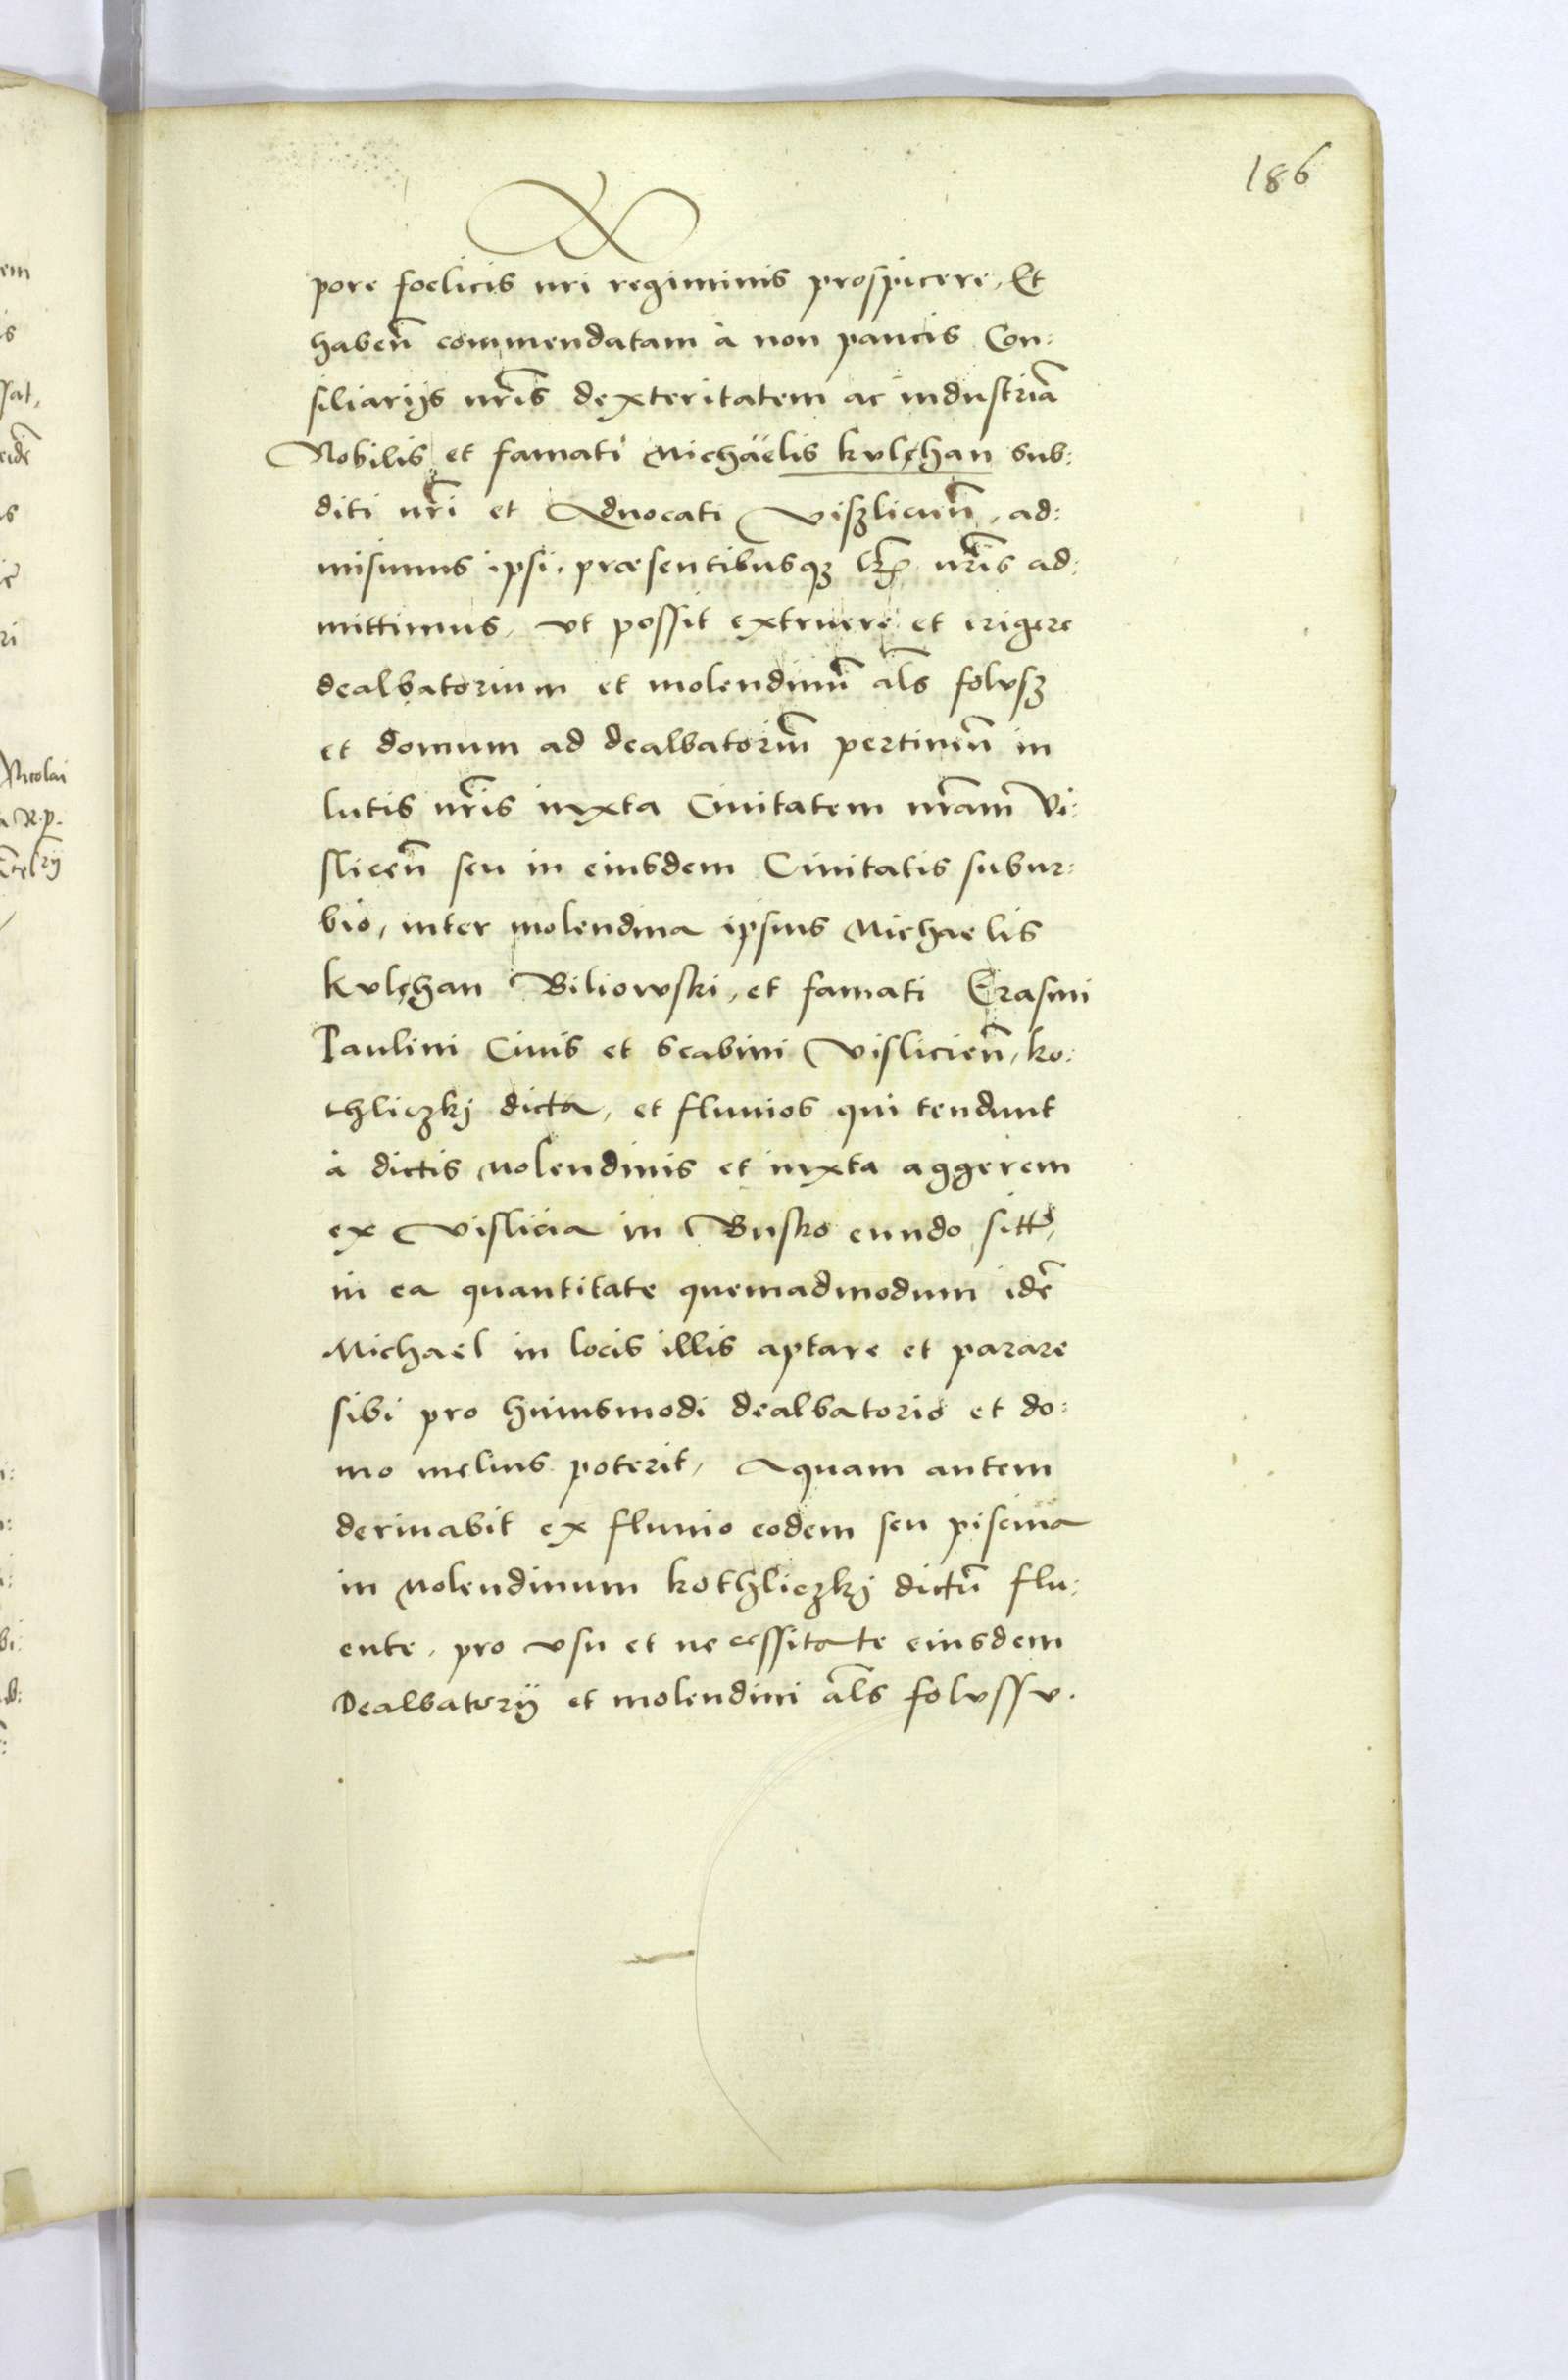 186
pore foelicis nri regiminis prospicere, Et
haben̄ commendatam à non paucis Con:
siliarijs nr̄is dexteritatem ac industriā
Nobilis et famati Michaëlis kulęhan sub:
diti nr̄i et Aduocati Viszlicien̄, ad:
misimus ipsi, præsentibusqꝫ lrꝭ nr̄is ad:
mittimus, vt possit extruere et erigere
dealbatorium et molendinū al̄s folusz
et domum ad dealbatoriū pertinen̄ in
lutis nr̄is iuxta Ciuitatem nr̄am Vi:
slicen̄ seu in eiusdem Ciuitatis subur:
bio, inter molendina ipsius Michaelis
kulęhan Biliowski, et famati Erasmi
Paulini Ciuis et scabini Vislicien̄, ko:
thliczkj dicta, et fluuios qui tendunt
à dictis Molendinis et iuxta aggerem
ex Vislicia in Busko eundo sitt,
in ea quantitate quemadmodum idē
Michael in locis illis aptare et parare
sibi pro huiusmodi dealbatorio et do:
mo melius poterit, Aquam autem
deriuabit ex fluuio eodem seu piscina
in Molendinum kothliczkj dictū flu:
ente, pro vsu et necessitate eiusdem
Dealbatorij et molendini al̄s folussu.